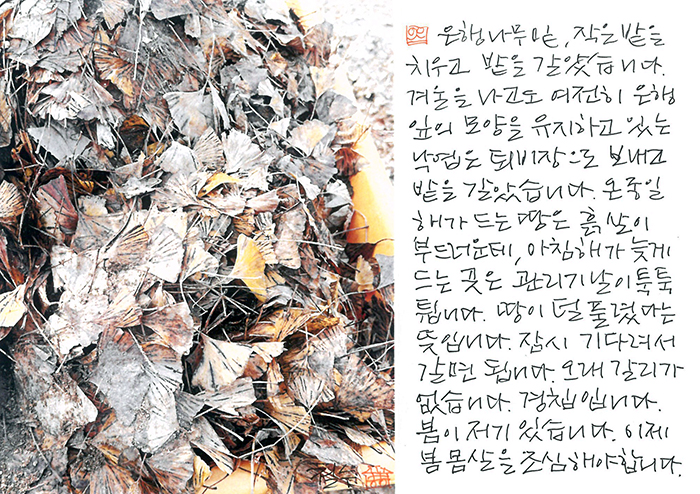 은행나무 밑, 작은 밭을
치우고 밭을 갈았습니다.
겨울을 나고도 여전히 은행
잎의 모양을 유지하고 있는
낙엽은 퇴비장으로 보내고
밭을 갈았습니다. 온종일
해가 드는 땅은 흙살이
부드러운데, 아침해가 늦게
드는 곳은 관리기 날이 툭툭
튑니다. 땅이 덜 풀렸다는
뜻입니다. 잠시 기다려서
갈면 됩니다. 오래 갈리가
없습니다. 경칩입니다.
봄이 저기 있습니다. 이제
봄 몸살을 조심해야합니다.